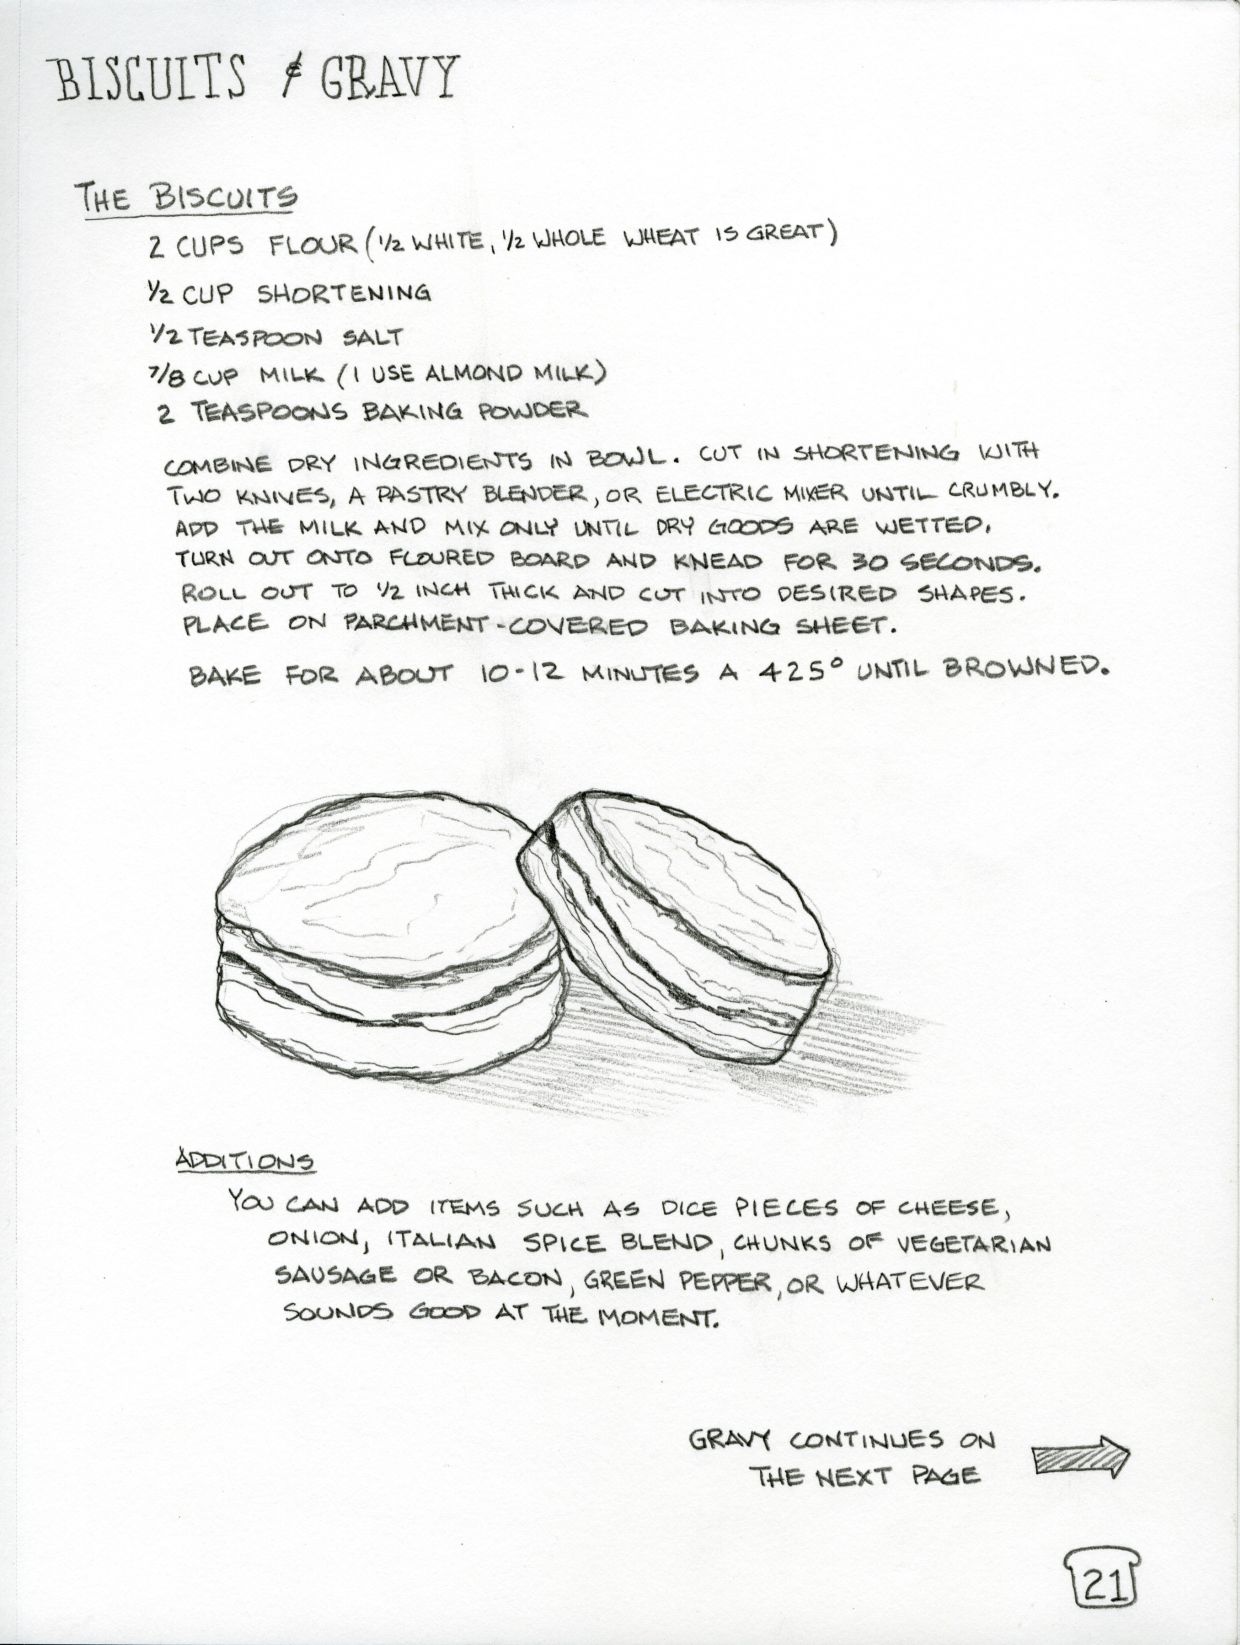 BISCUITS & GRAVY
THE BISCUITS
2 CUPS FLOUR (1/2 WHITE, 1/2 WHOLE WHEAT IS GREAT)
1/2 CUP SHORTENING
1/2 TEASPOON SALT
7/8 CUP MILK (I USE ALMOND MILK)
2 TEASPOONS BAKING POWDER
COMBINE DRY INGREDIENTS IN BOWL. CUT IN SHORTENING WITH
TWO KNIVES, A PASTRY BLENDER, OR ELECTRIC MIXER UNTIL CRUMBLY.
ADD THE MILK AND MIX ONLY UNTIL DRY GOODS ARE WETTED.
TURN OUT ONTO FLOURED BOARD AND KNEAD FOR 30 SECONDS.
ROLL OUT TO 1/2 INCH THICK AND CUT INTO DESIRED SHAPES.
PLACE ON PARCHMENT-COVERED BAKING SHEET.
BAKE FOR ABOUT 10-12 MINUTES A 425° UNTIL BROWNED.
ADDITIONS
YOU CAN ADD ITEMS SUCH AS DICE PIECES OF CHEESE,
ONION, ITALIAN SPICE BLEND, CHUNKS OF VEGETARIAN
SAUSAGE OR BACON, GREEN PEPPER, OR WHATEVER
SOUNDS GOOD AT THE MOMENT.
GRAVY CONTINUES ON
THE NEXT PAGE
21